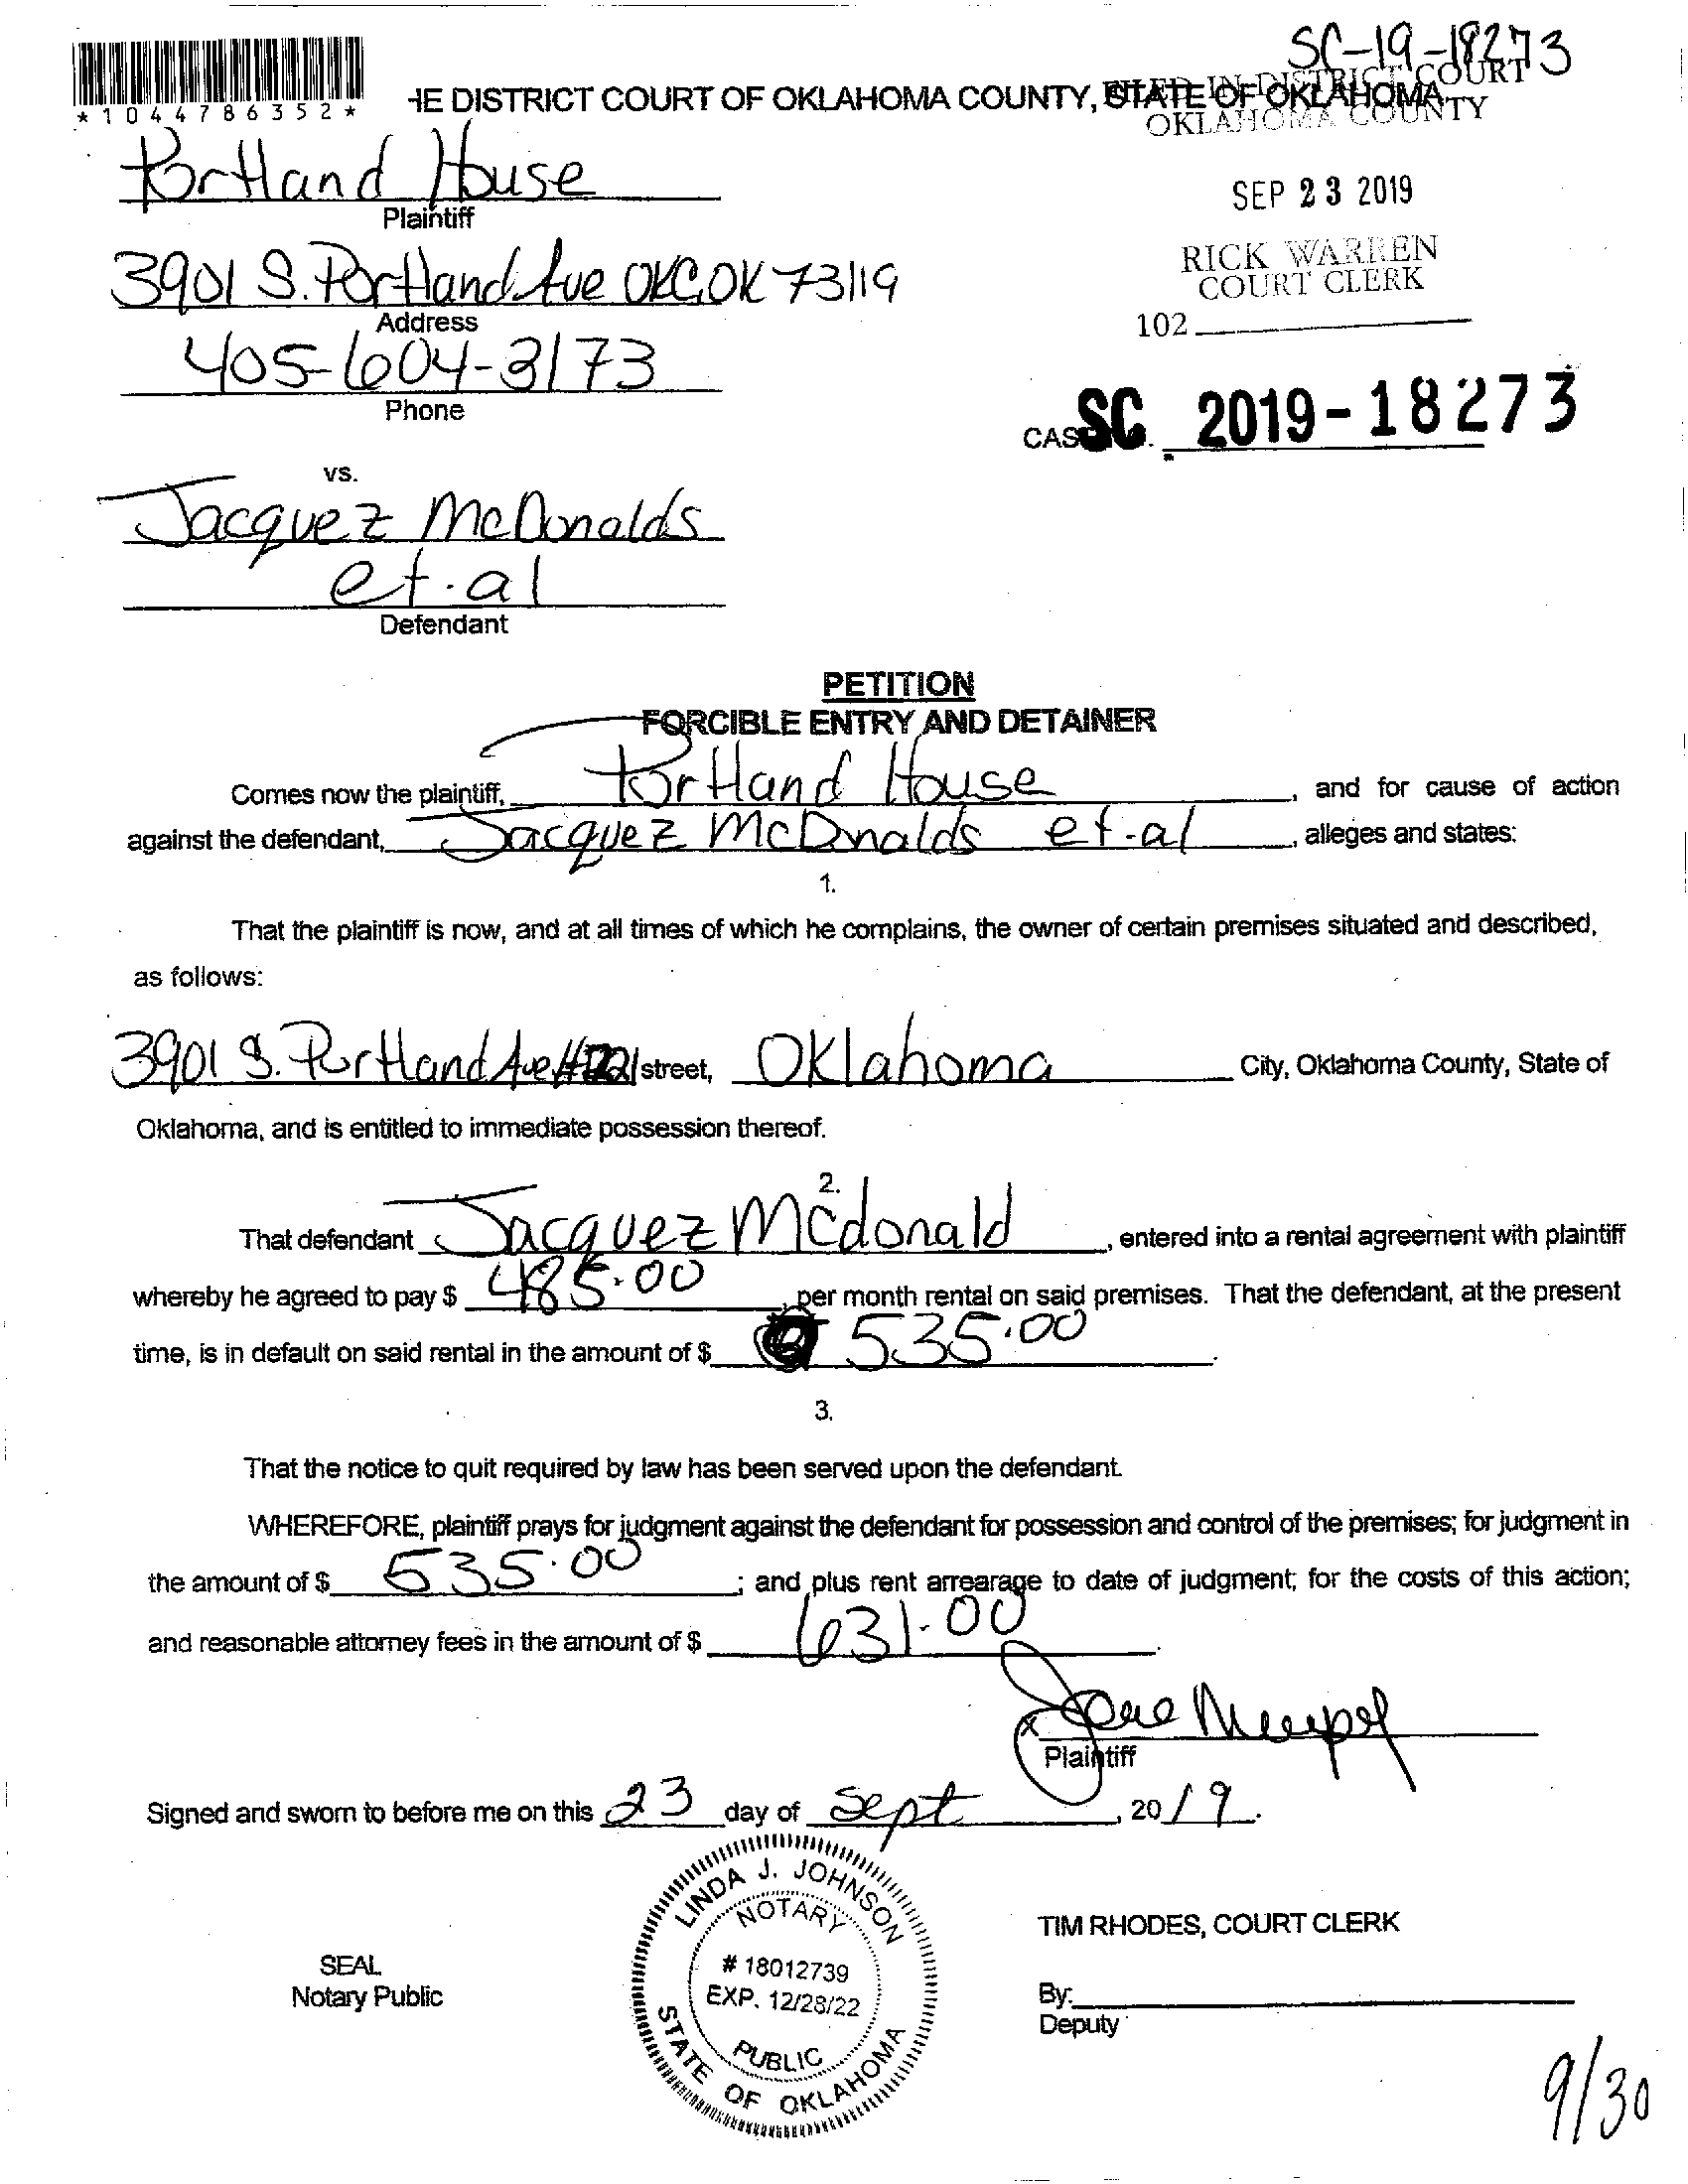 SC-19-18273
*1044786352*
HE DISTRICT COURT OF OKLAHOMA COUNTY, STATE OF OKLAHOMA
FILED IN DISTRICT COURT
OKLAHOMA COUNTY
Portland House
Plaintiff
SEP 23 2019
3901 S. Portland Ave OKC, OK 73119
Address
RICK WARREN
COURT CLERK
405-604-3173
Phone
102
CAS SC. 2019-18273
vs.
Jacquez McDonalds
et.al
Defendant
PETITION
FORCIBLE ENTRY AND DETAINER
Comes now the plaintiff, Portland House, and for cause of action
against the defendant, Jacquez McDonalds et-al, alleges and states:
1.
That the plaintiff is now, and at all times of which he complains, the owner of certain premises situated and described,
as follows:
3901 S. Portland Ave street, Oklahoma City, Oklahoma County, State of
Oklahoma, and is entitled to immediate possession thereof.
2.
That defendant Jacquez Mcdonald, entered into a rental agreement with plaintiff
whereby he agreed to pay $ 485.00, per month rental on said premises. That the defendant, at the present
time, is in default on said rental in the amount of $ 535.00.
3.
That the notice to quit required by law has been served upon the defendant.
WHEREFORE, plaintiff prays for judgment against the defendant for possession and control of the premises; for judgment in
the amount of $ 535.00; and plus rent arrearage to date of judgment; for the costs of this action;
and reasonable attorney fees in the amount of $ 631.00.
x
Plaintiff
Signed and sworn to before me on this 23 day of Sept, 2019.
LINDA J. JOHNSON
NOTARY
# 18012739
EXP. 12/28/22
PUBLIC
STATE OF OKLAHOMA
SEAL
Notary Public
TIM RHODES, COURT CLERK
By:
Deputy
9/30